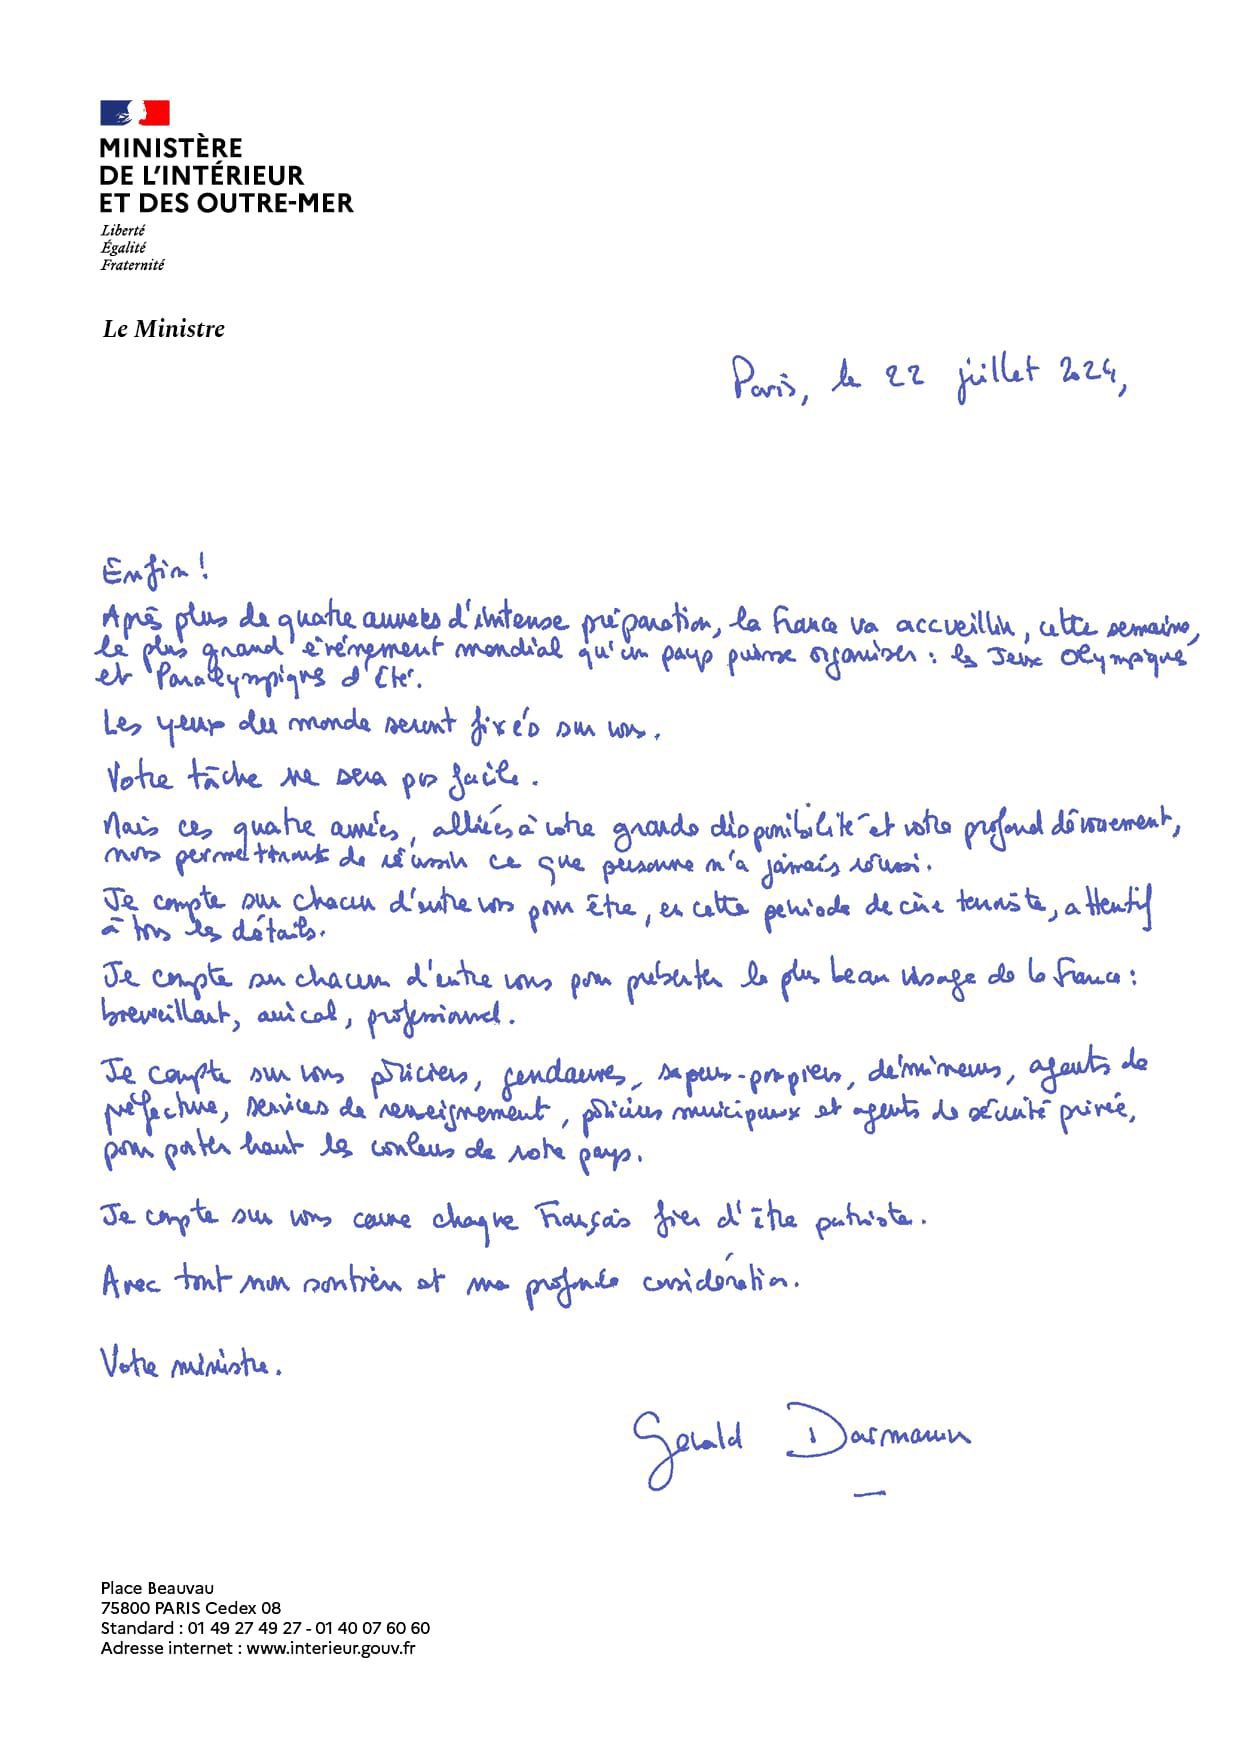 MINISTÈRE
DE L'INTÉRIEUR
ET DES OUTRE-MER
Liberté
Égalité
Fraternité
Le Ministre
Paris, le 22 juillet 2024,
Enfin !
Après plus de quatre années d'intense préparation, la France va accueillir, cette semaine,
le plus grand évènement mondial qu'un pays puisse organiser : les Jeux Olympiques
et Paralympiques d'Été.
Les yeux du monde seront fixés sur vous.
Votre tâche ne sera pas facile.
Mais ces quatre années, alliées à votre grande disponibilité et votre profond dévouement,
nous permettront de réussir ce que personne n'a jamais réussi.
Je compte sur chacun d'entre vous pour être, en cette période de crise terroriste, attentif
à tous les détails.
Je compte sur chacun d'entre vous pour présenter le plus beau visage de la France :
bienveillant, amical, professionnel.
Je compte sur vous policiers, gendarmes, sapeurs-pompiers, démineurs, agents de
préfecture, services de renseignement, policiers municipaux et agents de sécurité privée,
pour porter haut les couleurs de notre pays.
Je compte sur vous comme chaque Français fier d'être patriote.
Avec tout mon soutien et ma profonde considération.
Votre ministre.
Gérald Darmanin
Place Beauvau
75800 PARIS Cedex 08
Standard : 01 49 27 49 27 - 01 40 07 60 60
Adresse internet : www.interieur.gouv.fr